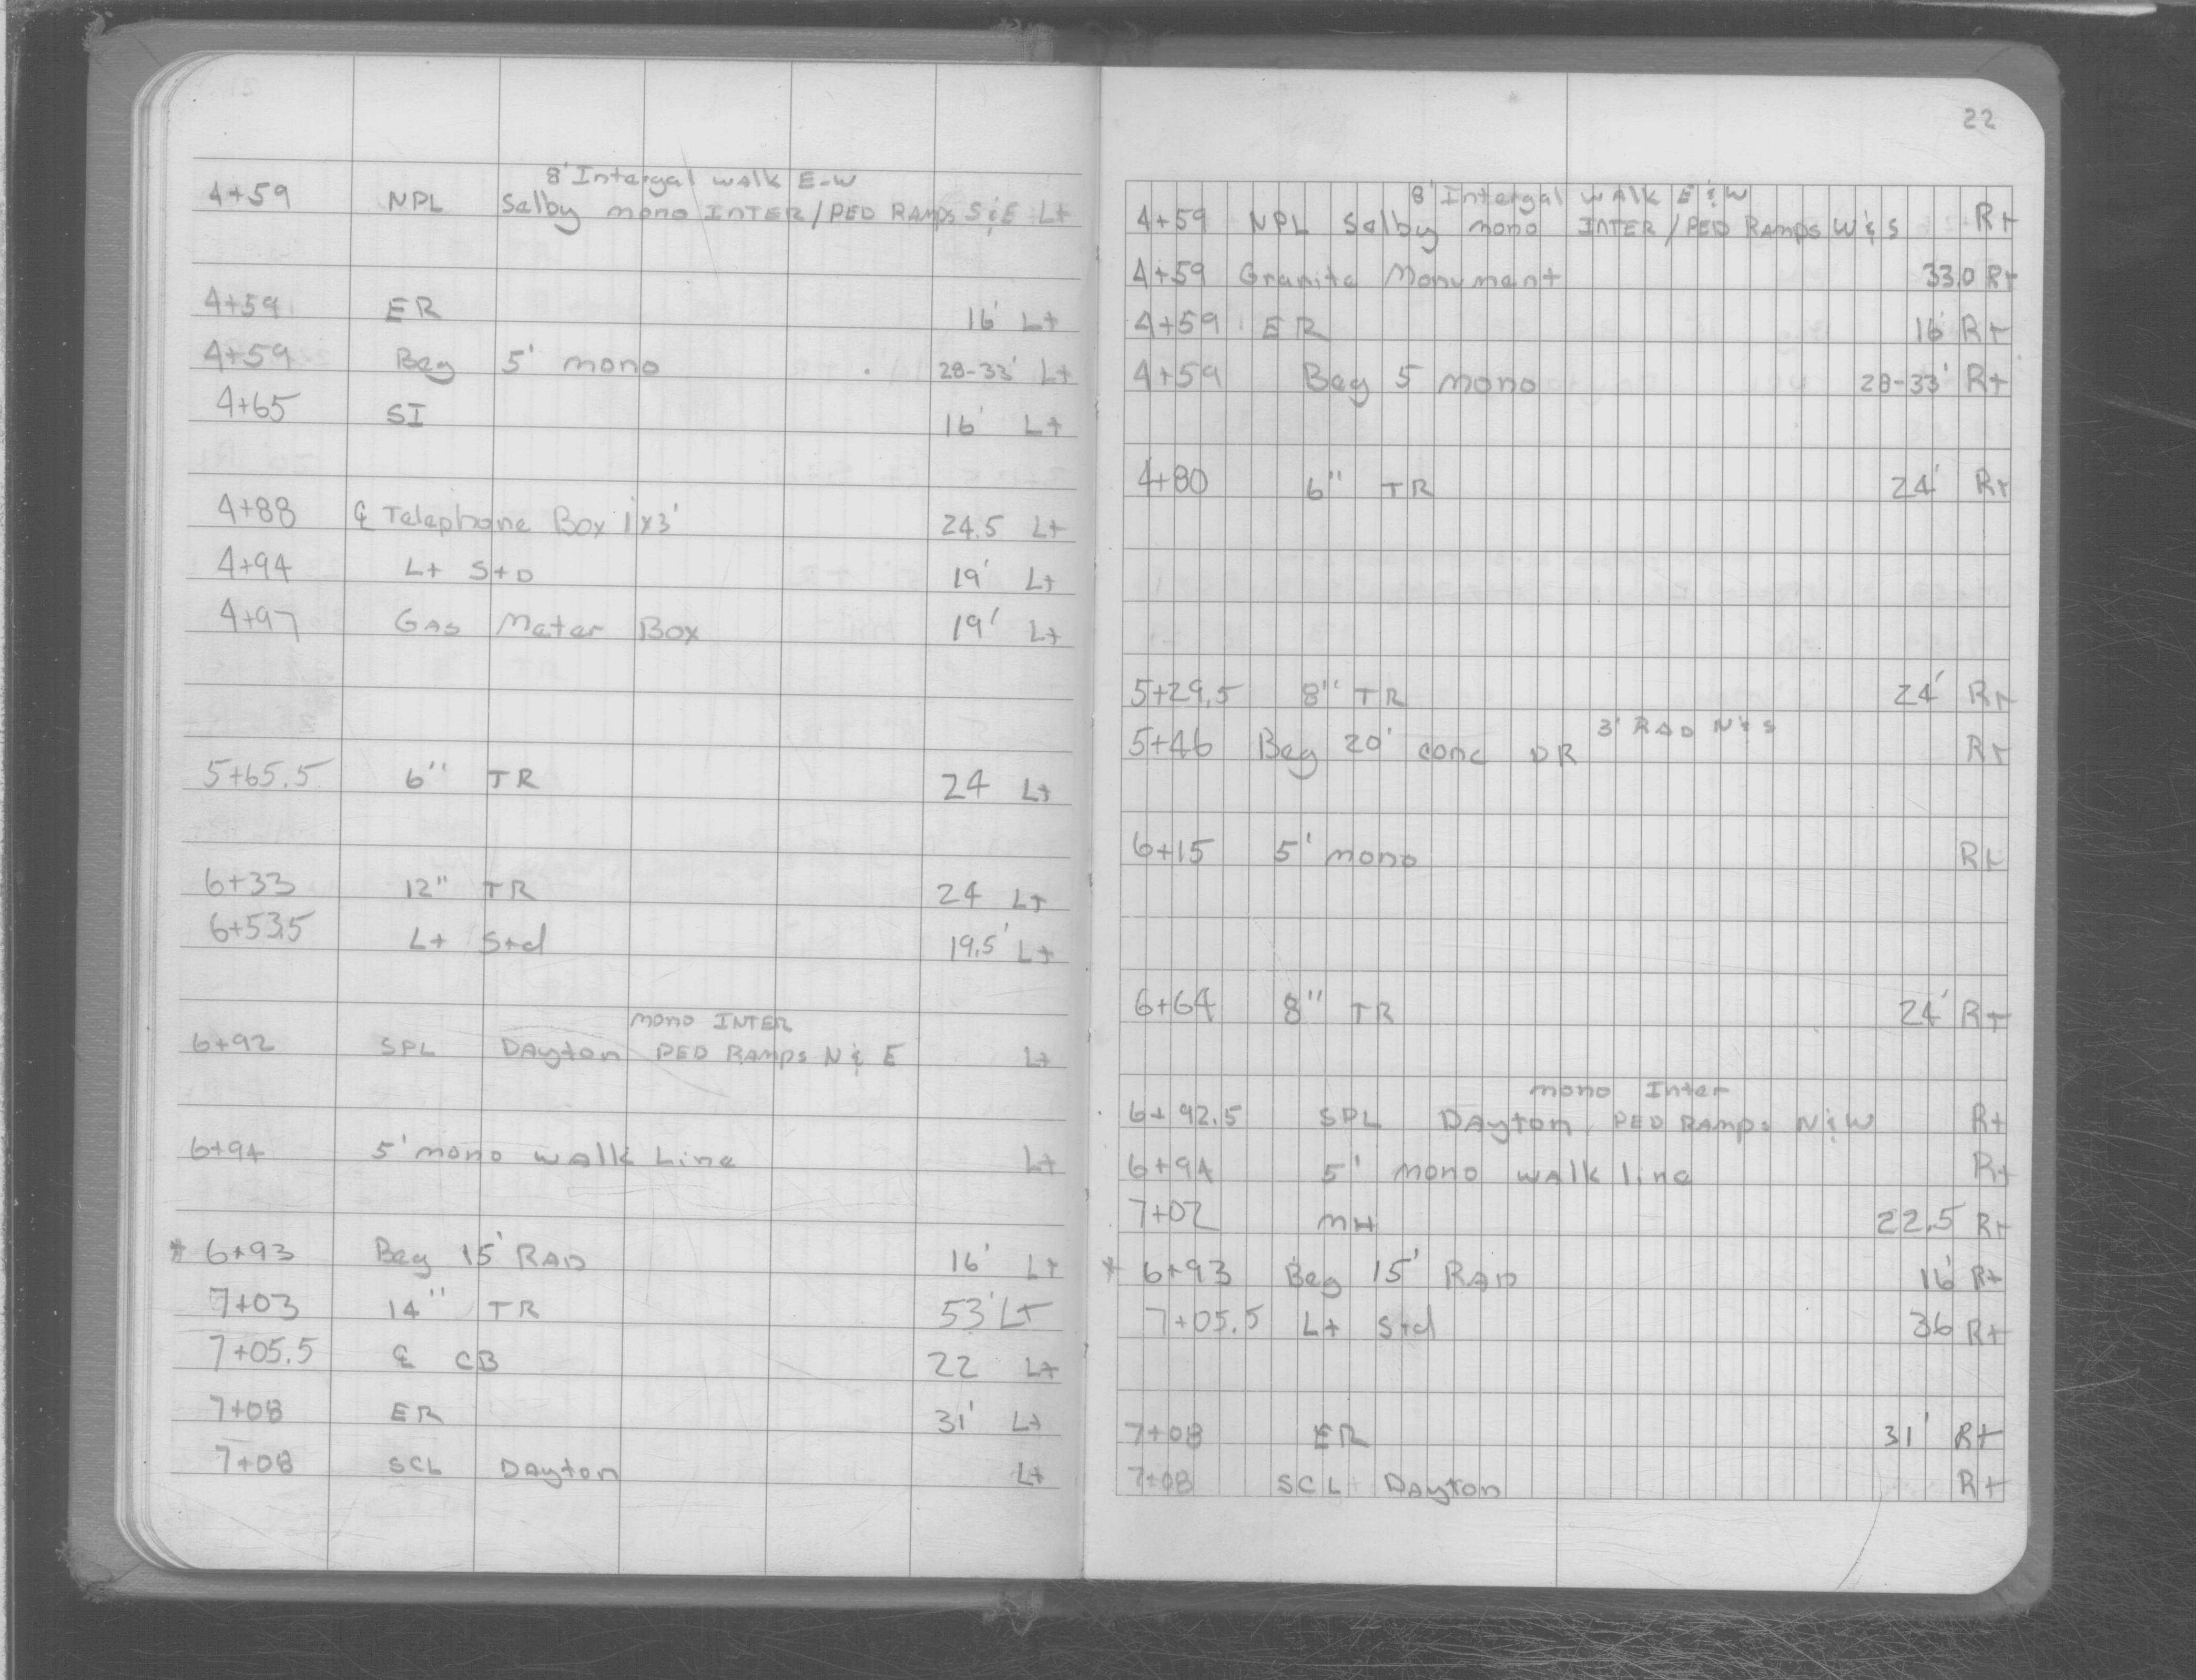 8' Intergal walk E-W
4+59 NPL Selby mono INTER/PED RAmps S & E Lt
4+59 ER 16' Lt
4+59 Beg 5' mono 28-33' Lt
4+65 SI 16' Lt
4+88 ℄ Telephone Box 1x3' 24.5 Lt
4+94 Lt StD 19' Lt
4+97 GAS Meter Box 19' Lt
5+65.5 6" TR 24 Lt
6+33 12" TR 24 Lt
6+53.5 Lt Std 19.5' Lt
mono INTER
6+92 SPL DAyton PED RAmps N & E Lt
6+94 5' mono walk Line Lt
* 6+93 Beg 15' RAD 16' Lt
7+03 14" TR 53' Lt
7+05.5 ℄ CB 22 Lt
7+08 ER 31' Lt
7+08 SCL DAyton Lt
22
8' Intergal walk E & W
4+59 NPL Selby mono INTER/PED RAmps W & S Rt
4+59 Granite Monument 33.0 Rt
4+59 ER 16' Rt
4+59 Beg 5 mono 28-33' Rt
4+80 6" TR 24' Rt
5+29.5 8" TR 24' Rt
3' RAD N & S
5+46 Beg 20' conc DR Rt
6+15 5' mono Rt
6+64 8" TR 24' Rt
mono Inter
6+92.5 SPL DAyton PED RAmps N & W Rt
6+94 5' mono walk line Rt
7+02 MH 22.5 Rt
* 6+93 Beg 15' RAD 16' Rt
7+05.5 Lt Std 36 Rt
7+08 ER 31' Rt
7+08 SCL DAyton Rt